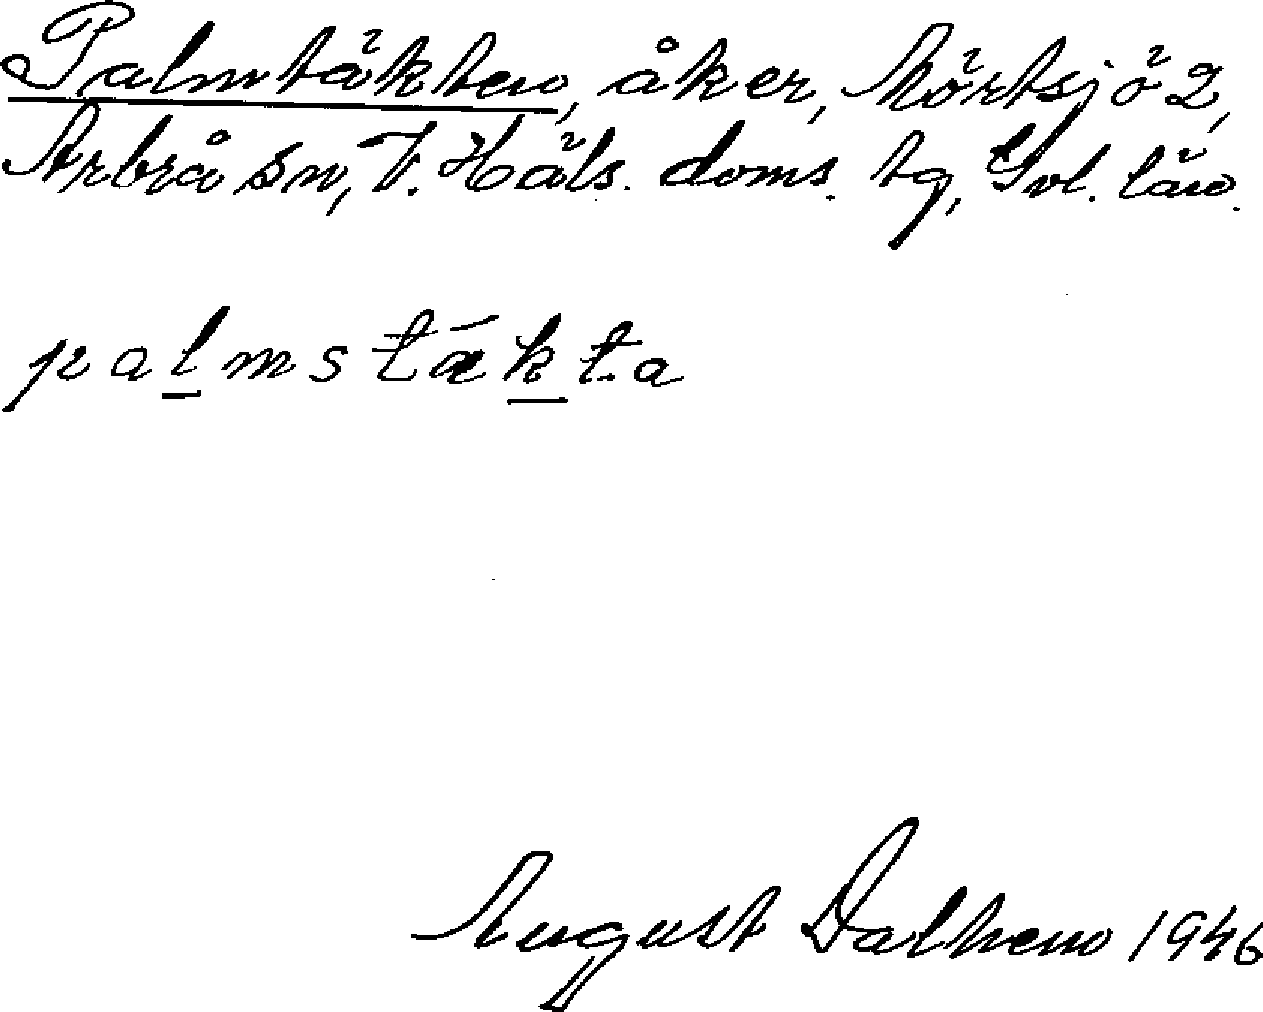 Palmtäkten, åker, Mörtsjö 2,
Arbrå sn, V. Häls. doms. tg, Gvl. län.
palmstǽkta
August Dalhem 1946